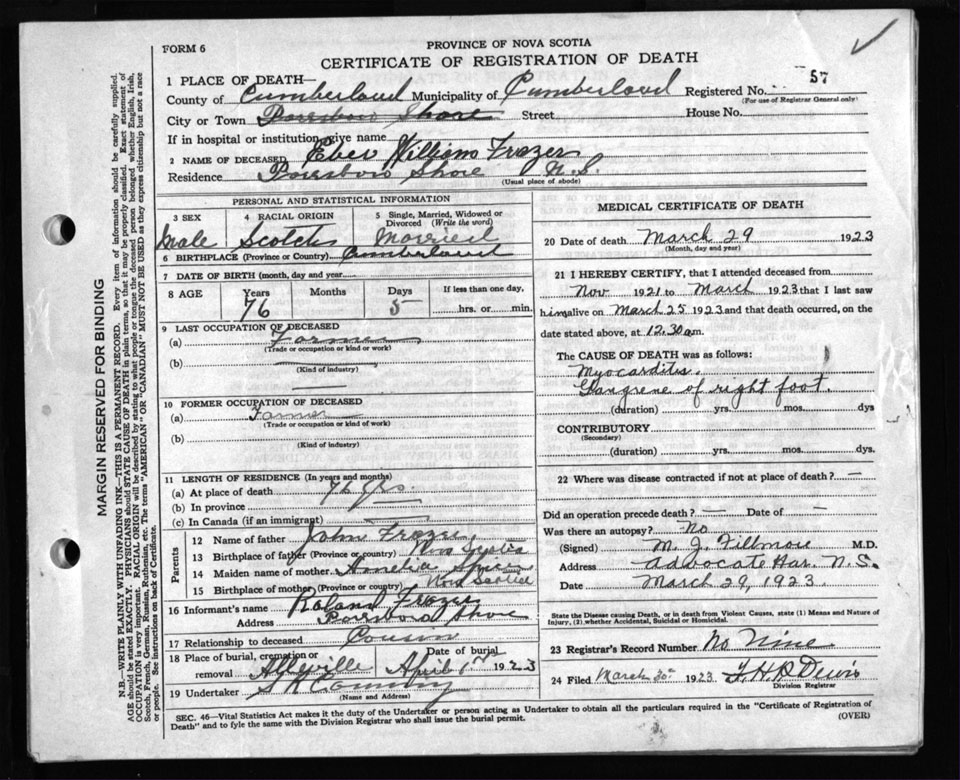 FORM 6
PROVINCE OF NOVA SCOTIA
CERTIFICATE OF REGISTRATION OF DEATH
1 PLACE OF DEATH—
57
County of Cumberland Municipality of Cumberland Registered No.
(For use of Registrar General only)
City or Town Parrsboro Shore Street House No.
If in hospital or institution, give name
2 NAME OF DECEASED Eber William Frazer
Residence Parrsboro Shore N. S.
(Usual place of abode)
PERSONAL AND STATISTICAL INFORMATION
3 SEX 4 RACIAL ORIGIN 5 Single, Married, Widowed or Divorced (Write the word)
Male Scotch Married
6 BIRTHPLACE (Province or Country) Cumberland
7 DATE OF BIRTH (month, day and year)
8 AGE Years Months Days If less than one day,
76 5 hrs. or min.
9 LAST OCCUPATION OF DECEASED
(a) Farmer
(Trade or occupation or kind of work)
(b)
(Kind of industry)
10 FORMER OCCUPATION OF DECEASED
(a) Farmer
(Trade or occupation or kind of work)
(b)
(Kind of industry)
11 LENGTH OF RESIDENCE (In years and months)
(a) At place of death 76 yrs.
(b) In province
(c) In Canada (if an immigrant)
Parents
12 Name of father John Frazer
13 Birthplace of father (Province or country) Nova Scotia
14 Maiden name of mother Amelia
15 Birthplace of mother (Province or country) Nova Scotia
16 Informant's name Roland Frazer
Address Parrsboro Shore
17 Relationship to deceased Cousin
18 Place of burial, cremation or removal Date of burial
April 1st 1923
19 Undertaker
(Name and Address)
MEDICAL CERTIFICATE OF DEATH
20 Date of death March 29 1923
(Month, day and year)
21 I HEREBY CERTIFY, that I attended deceased from
Nov 1921 to March 1923 that I last saw
him alive on March 25 1923 and that death occurred, on the
date stated above, at 12.30 a.m.
The CAUSE OF DEATH was as follows:
Myocarditis.
Gangrene of right foot.
(duration) yrs. mos. dys
CONTRIBUTORY
(Secondary)
(duration) yrs. mos. dys.
22 Where was disease contracted if not at place of death? —
Did an operation precede death? — Date of —
Was there an autopsy? No
(Signed) M. J. Fillmore M.D.
Address Advocate Har. N. S.
Date March 29, 1923
State the Disease causing Death, or in death from Violent Causes, state (1) Means and Nature of Injury, (2) whether Accidental, Suicidal or Homicidal.
23 Registrar's Record Number No Nine
24 Filed March 30th 1923
Division Registrar
SEC. 46—Vital Statistics Act makes it the duty of the Undertaker or person acting as Undertaker to obtain all the particulars required in the "Certificate of Registration of
Death" and to fyle the same with the Division Registrar who shall issue the burial permit.
(OVER)
MARGIN RESERVED FOR BINDING
N.B.—WRITE PLAINLY WITH UNFADING INK—THIS IS A PERMANENT RECORD. Every item of information should be carefully supplied.
AGE should be stated EXACTLY. PHYSICIANS should STATE CAUSE OF DEATH in plain terms, so that it may be properly classified. Exact statement of
OCCUPATION is very important. RACIAL ORIGIN will be described by stating to what people or tongue the deceased person belonged, whether English, Irish,
Scotch, French, German, Russian, Ruthenian, etc. The terms "AMERICAN" OR "CANADIAN" MUST NOT BE USED as they express citizenship but not a race
or people. See instructions on back of Certificate.